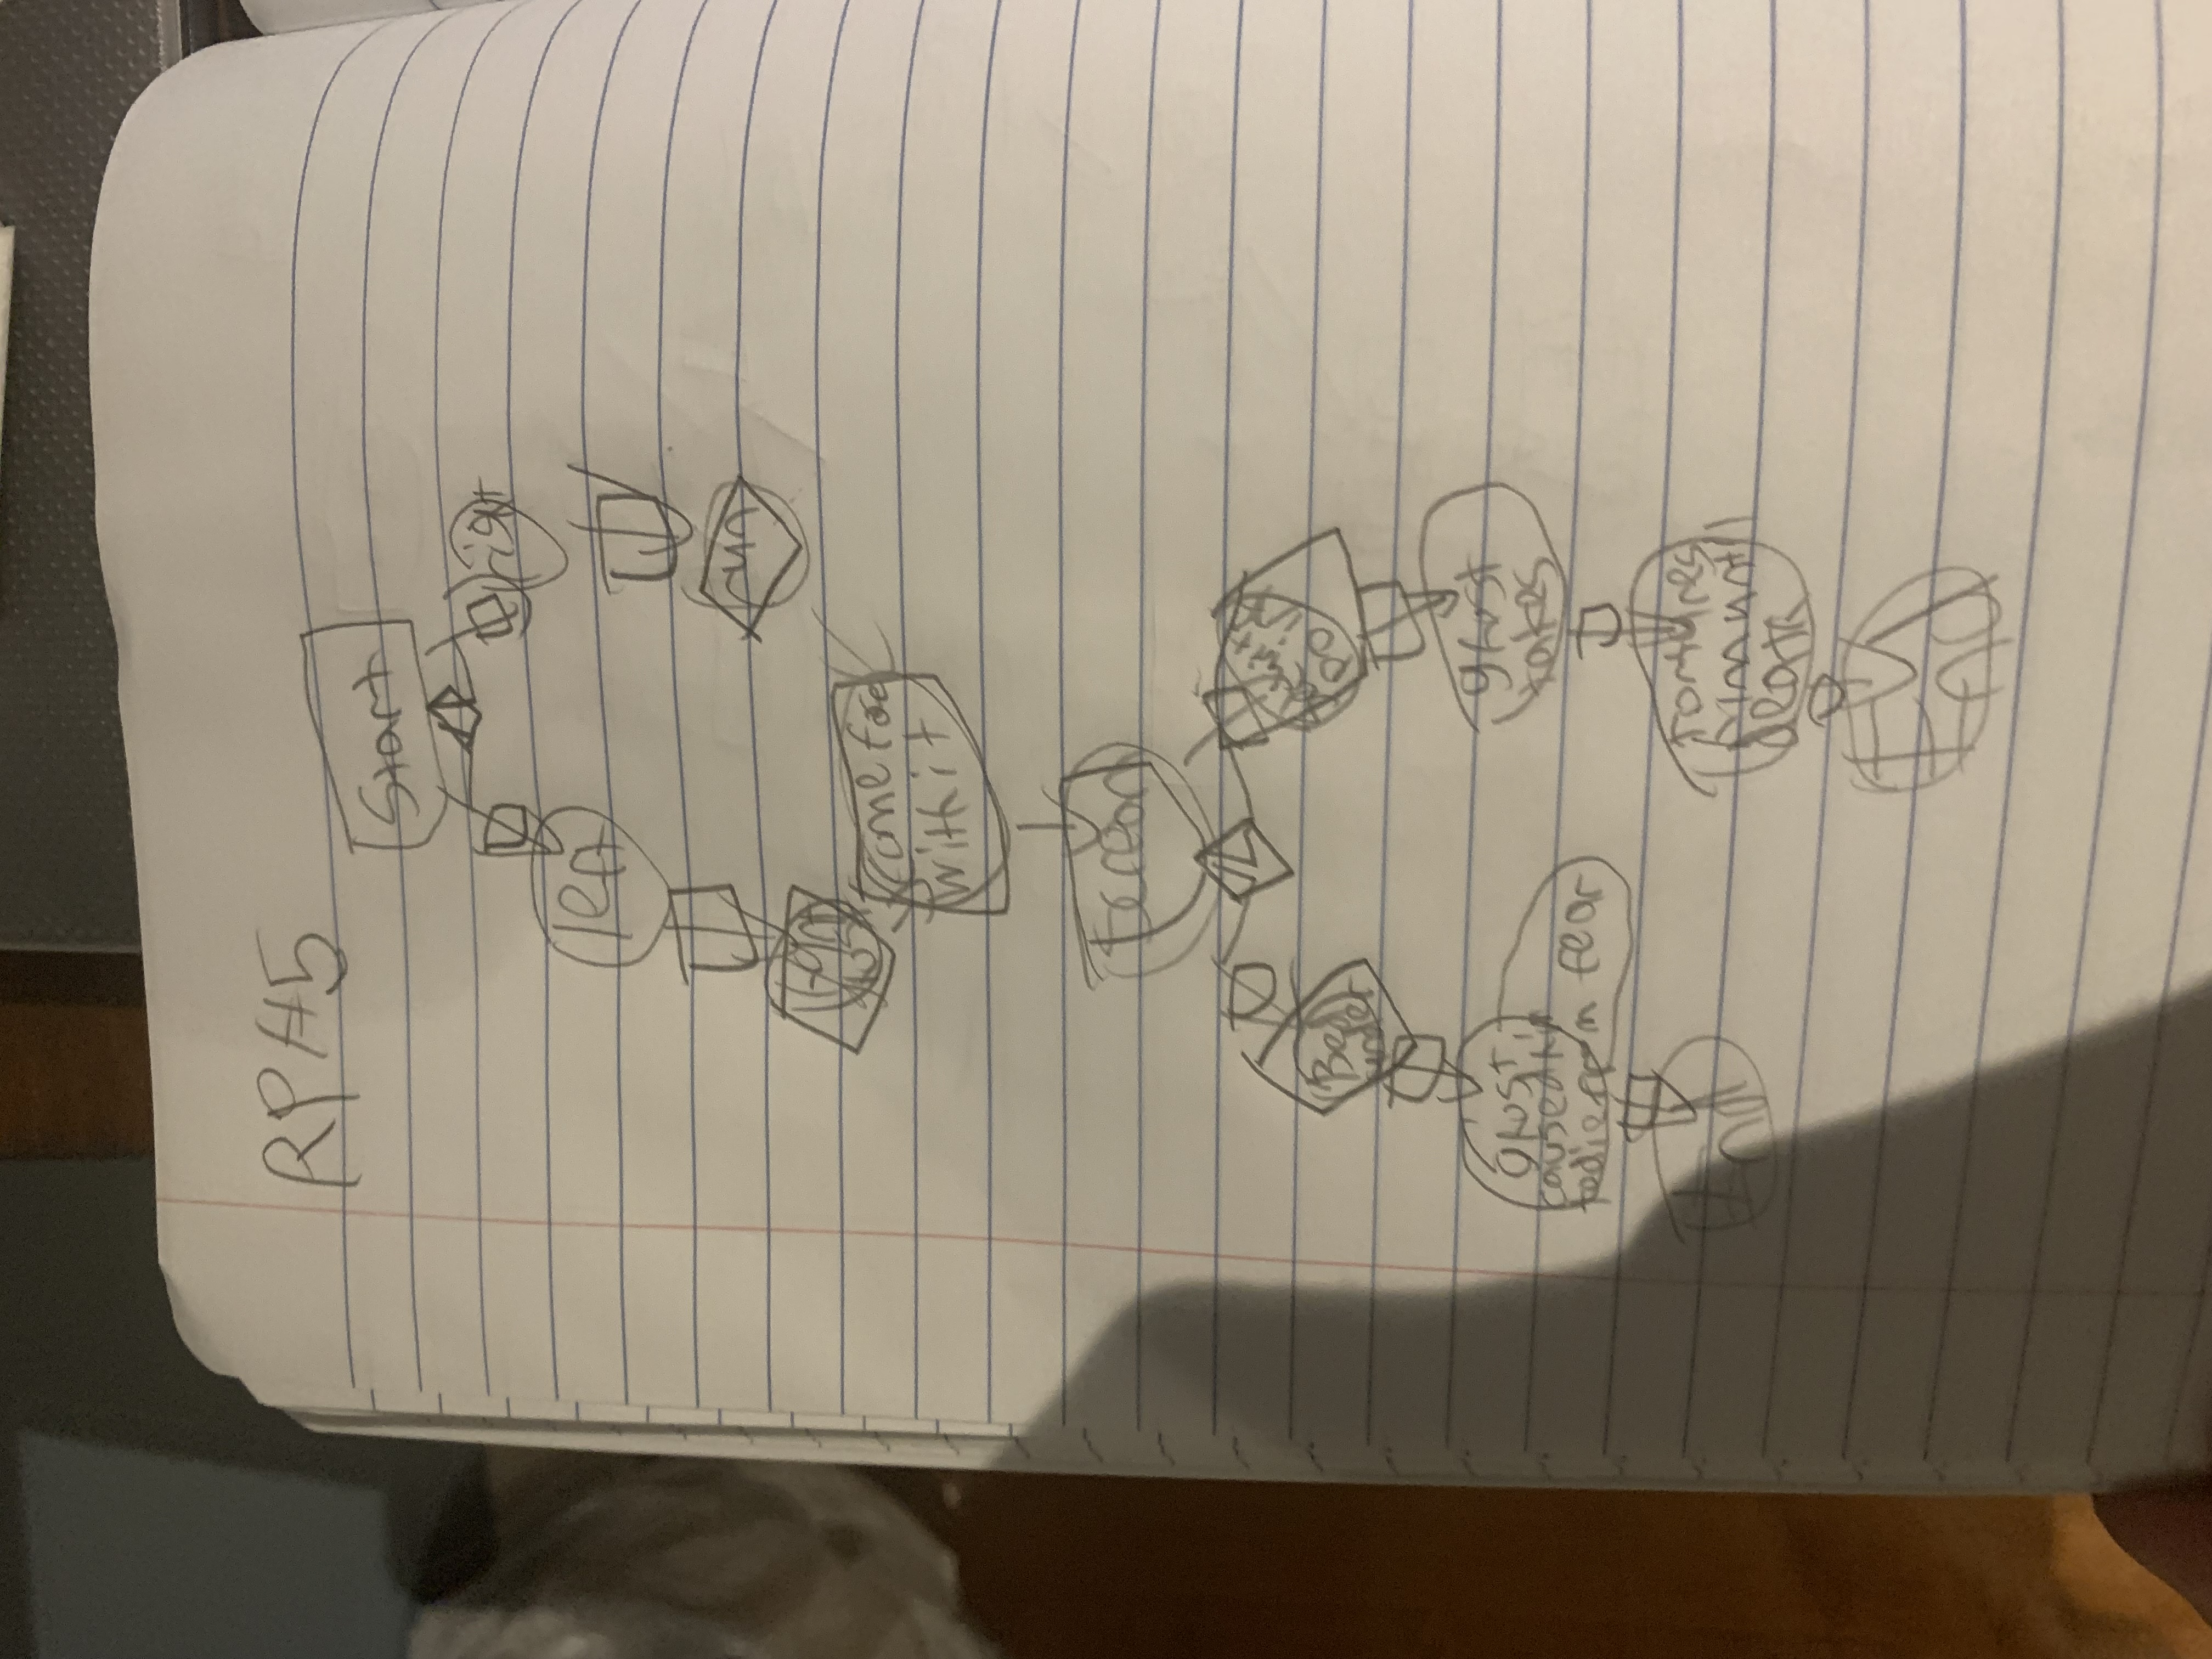 RP#5
Start
left
right
run
come face
with it
scream
Bed
under
ghost
caused him
to die from fear
End
ghost
takes
tortures
him until
death
End